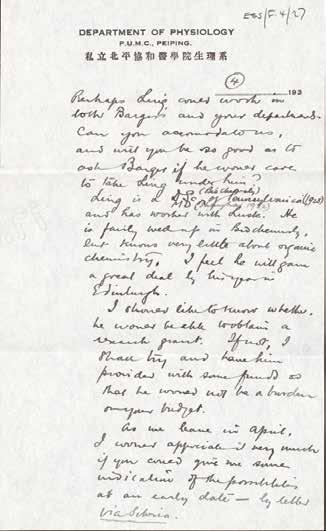 ESS/F.4/27
DEPARTMENT OF PHYSIOLOGY
P.U.M.C., PEIPING.
私立北平協和醫學院生理系
4
193
Perhaps Ling could work in
both Barger's and your department.
Can you accomodate us,
and will you be so good as to
ask Barger if he would care
to take Ling under him?
(Biochemistry)
Ling is a of Pennsylvania (1925)
and has worked with Lusk. He
is fairly well up in Biochemistry,
but knows very little about organic
chemistry. I feel he will gain
a great deal by his year in
Edinburgh.
I should like to know whether
he would be able to obtain a
research grant. If not, I
shall try and have him
provided with some funds so
that he would not be a burden
on your budget.
As we leave in April,
I would appreciate it very much
if you could give me some
indication of the possibilities
at an early date — by letter
via Siberia.